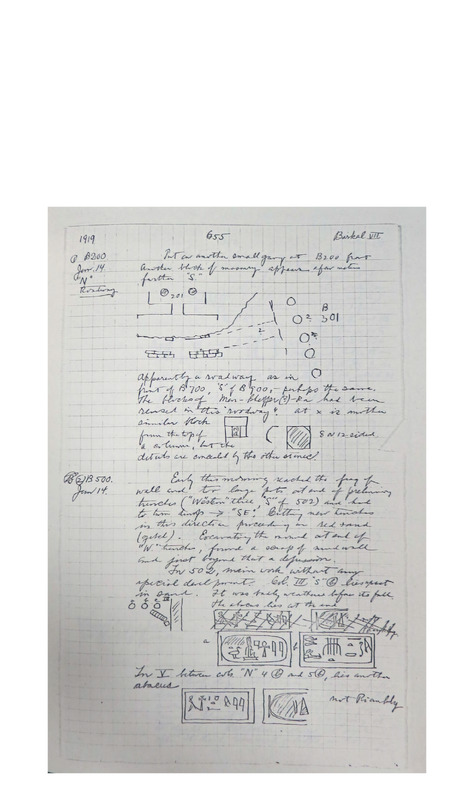 1919 655 Barkal VII
B200
Jan. 14
"N"
Roadway
Put on another small gang at B200 front
another block of masonry appears a few metres
further "S"
201
B
301
2
Apparently a roadway as in
front of B700, "S" of B900, - perhaps the same.
The blocks of Men-kheper(?)-Ra had been
reused in this "roadway". at x is another
similar block
from the top of
a column, but the
details are concealed by the other stones
B500.
Jan 14.
Early this morning reached the
wall and two large pots at end of preliminary
trenches ("Western" "S" of 502) and had
to turn → "SE". Cutting new trenches
in this direction proceeding in red sand
(gebel). Excavating the mound at end of
"W" trenches, found a scrap of mud wall
and just beyond that a depression.
In 502, main work without any
special development. Col. III "S" lies
in sand. It was badly weathered before its fall.
The abacus lies at the end
a
b
In V between cols "N" 4 and 5, lies another
abacus
not Piankhy